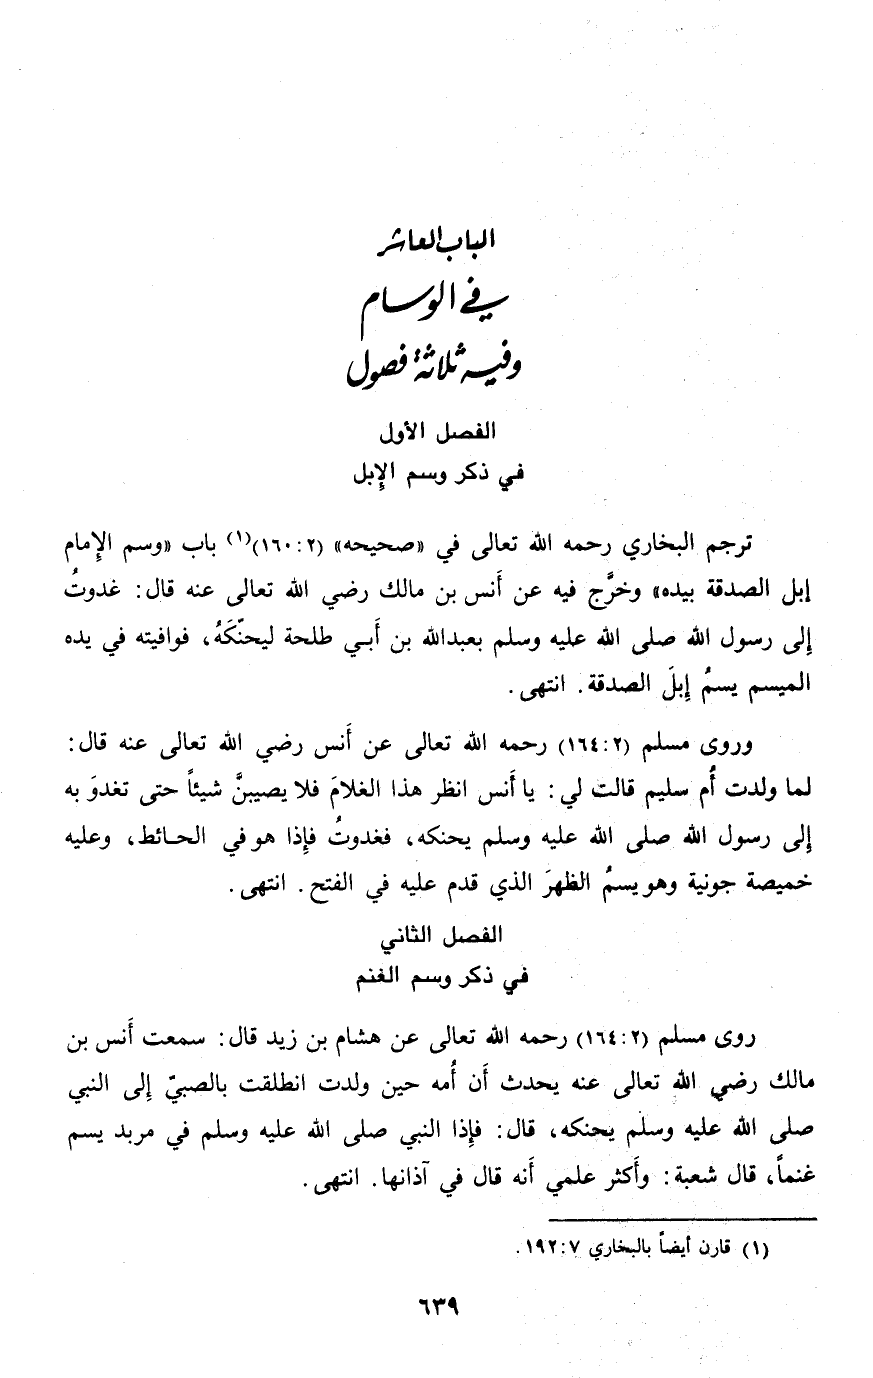 الباب العاشر
في الوسام
وفيه ثلاثة فصول
الفصل الأول
في ذكر وسم الإبل
ترجم البخاري رحمه الله تعالى في «صحيحه» (٢: ١٦٠)(١) باب «وسم الإمام
إبل الصدقة بيده» وخرَّج فيه عن أَنس بن مالك رضي الله تعالى عنه قال: غدوتُ
إلى رسول الله صلى الله عليه وسلم بعبدالله بن أَبي طلحة ليحنّكَهُ، فوافيته في يده
الميسم يسمُ إبلَ الصدقة. انتهى.
وروى مسلم (٢: ١٦٤) رحمه الله تعالى عن أَنس رضي الله تعالى عنه قال:
لما ولدت أُم سليم قالت لي: يا أَنس انظر هذا الغلامَ فلا يصيبنَّ شيئاً حتى تغدوَ به
إلى رسول الله صلى الله عليه وسلم يحنكه، فغدوتُ فإذا هو في الحائط، وعليه
خميصة جونية وهو يسمُ الظهرَ الذي قدم عليه في الفتح. انتهى.
الفصل الثاني
في ذكر وسم الغنم
روى مسلم (٢: ١٦٤) رحمه الله تعالى عن هشام بن زيد قال: سمعت أَنس بن
مالك رضي الله تعالى عنه يحدث أَن أُمه حين ولدت انطلقت بالصبيّ إلى النبي
صلى الله عليه وسلم يحنكه، قال: فإذا النبي صلى الله عليه وسلم في مربد يسم
غنماً، قال شعبة: وأَكثر علمي أَنه قال في آذانها. انتهى.
(١) قارن أيضاً بالبخاري ٧: ١٩٢.
٦٣٩